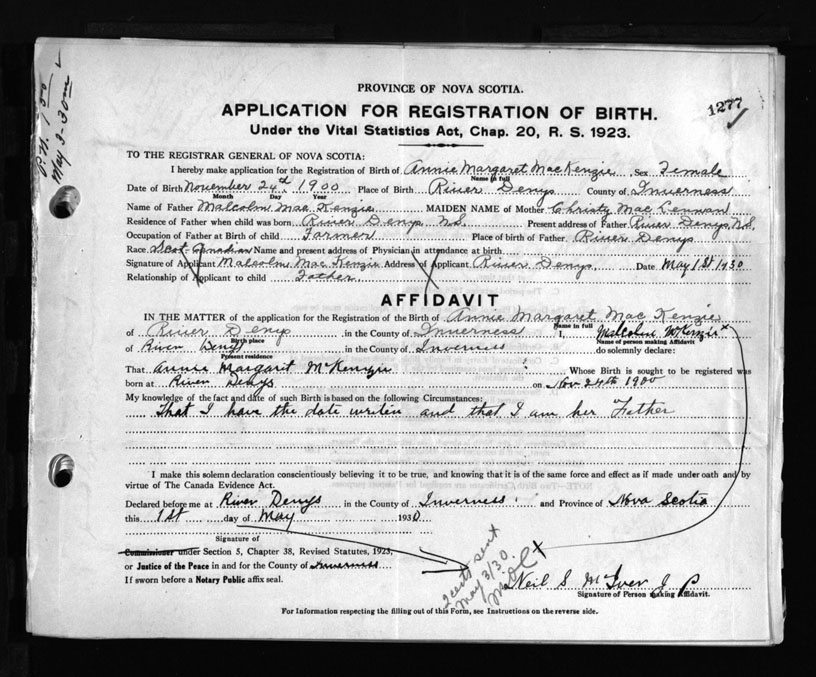 P.N. 1.00
May 3-30
PROVINCE OF NOVA SCOTIA.
1277
APPLICATION FOR REGISTRATION OF BIRTH.
Under the Vital Statistics Act, Chap. 20, R. S. 1923.
TO THE REGISTRAR GENERAL OF NOVA SCOTIA:
I hereby make application for the Registration of Birth of Annie Margaret MacKenzie Sex Female
Name in full
Date of Birth November 24th 1900 Place of Birth River Denys County of Inverness
Month Day Year
Name of Father Malcolm MacKenzie MAIDEN NAME of Mother Christy MacLennan
Residence of Father when child was born River Denys N.S. Present address of Father River Denys, N.S.
Occupation of Father at Birth of child Farmer Place of birth of Father River Denys
Race Scot Canadian Name and present address of Physician in attendance at birth
Signature of Applicant Malcolm MacKenzie Address of Applicant River Denys. Date May 1st 1930
Relationship of Applicant to child Father
AFFIDAVIT
IN THE MATTER of the application for the Registration of the Birth of Annie Margaret MacKenzie
Name in full
of River Denys in the County of Inverness I, Malcolm McKenzie x
Birth place Name of person making Affidavit
of River Denys in the County of Inverness do solemnly declare:
Present residence
That Annie Margaret McKenzie Whose Birth is sought to be registered was
born at River Denys on Nov 24th 1900
My knowledge of the fact and date of such Birth is based on the following Circumstances:
That I have the date writen and that I am her Father
I make this solemn declaration conscientiously believing it to be true, and knowing that it is of the same force and effect as if made under oath and by
virtue of The Canada Evidence Act.
Declared before me at River Denys in the County of Inverness and Province of Nova Scotia
this 1st day of May 1930
Signature of
Commissioner under Section 5, Chapter 38, Revised Statutes, 1923,
or Justice of the Peace in and for the County of Inverness
If sworn before a Notary Public affix seal.
2 certs sent
May 3/30.
x
Neil S. McIver J P
Signature of Person making Affidavit.
For Information respecting the filling out of this Form, see Instructions on the reverse side.